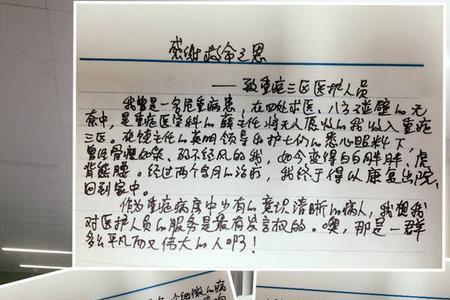 感谢救命之恩
——致重症三区医护人员
我曾是一名危重病患,在四处求医、八方碰壁的无
奈中,是重症医学科的薛主任将无人愿收的我收入重症
三区。在德主任的英明领导和护士们的悉心照料下,
曾经骨瘦如柴、弱不经风的我,如今变得白白胖胖,虎
背熊腰。经过两个多月的治疗,我终于得以康复出院,
回到家中。
作为重症病房中少有的意识清晰的病人,我想我
对医护人员的服务是最有发言权的。噢,那是一群
多么平凡而又伟大的人啊!